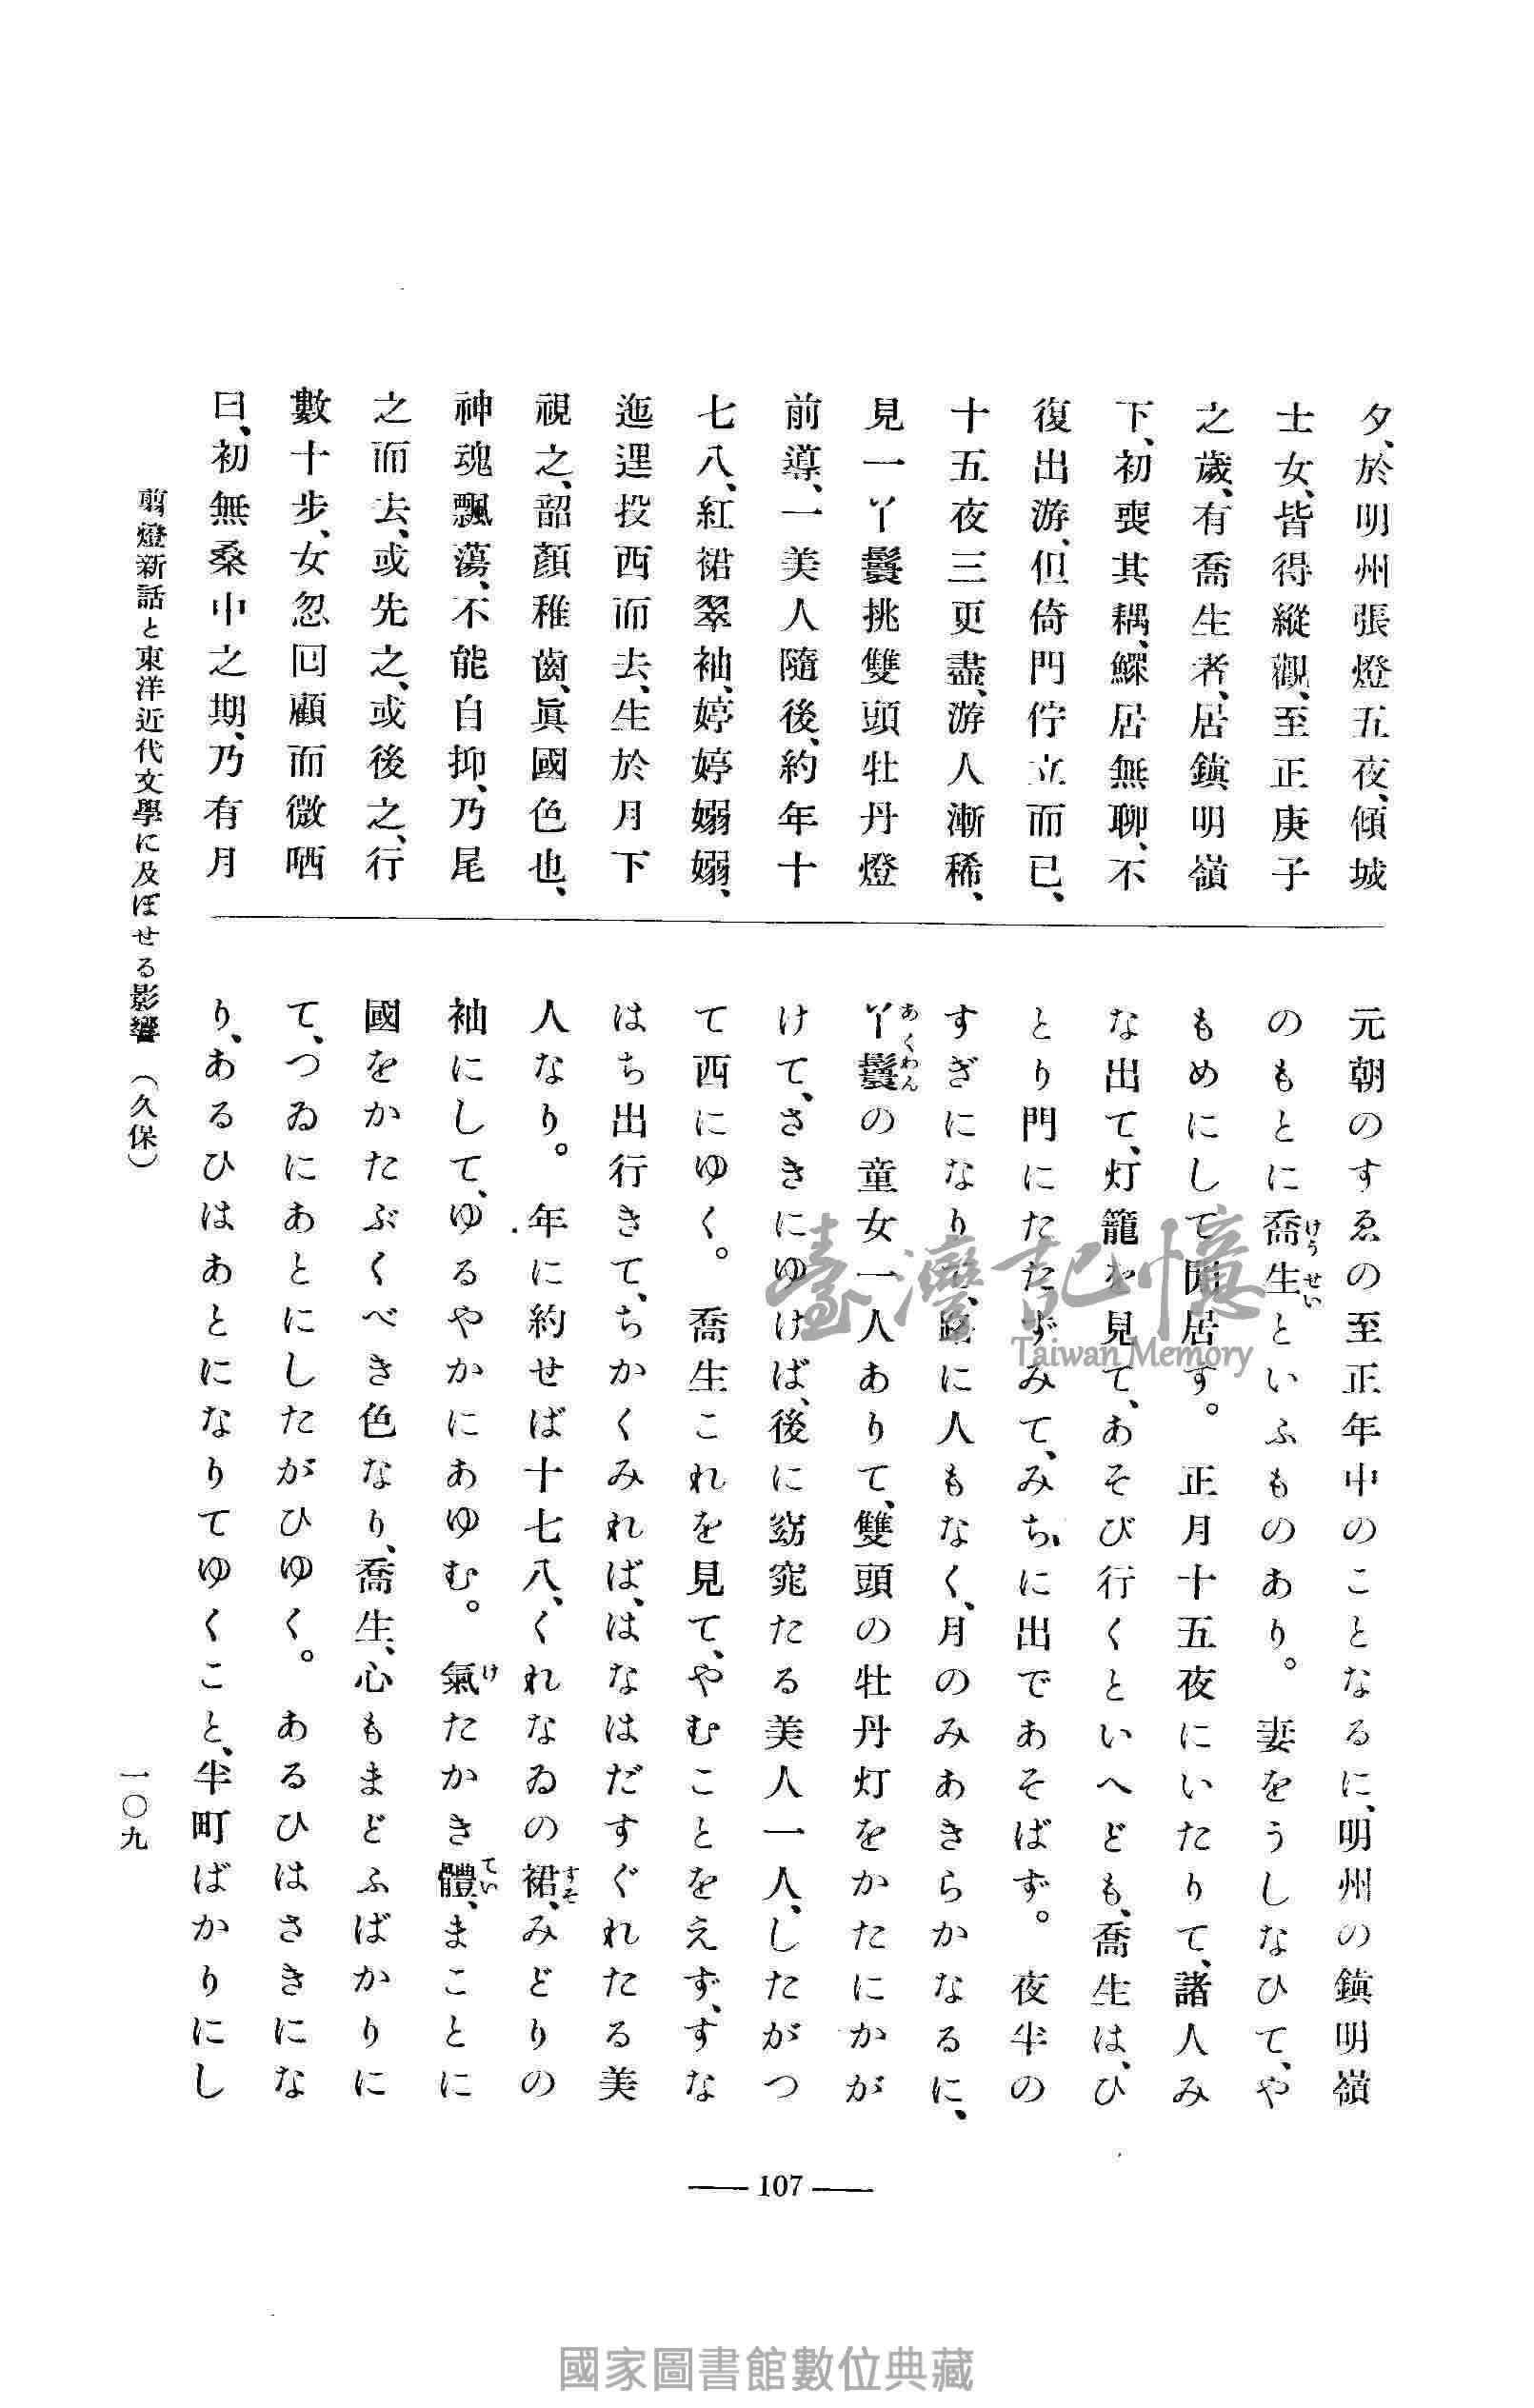 夕、於明州張燈五夜、傾城
士女、皆得縱觀、至正庚子
之歲、有喬生者、居鎮明嶺
下、初喪其耦、鰥居無聊、不
復出游、但倚門佇立而已、
十五夜三更盡、游人漸稀、
見一丫鬟挑雙頭牡丹燈
前導、一美人隨後、約年十
七八、紅裙翠袖、婷婷嫋嫋、
迤逕投西而去、生於月下
視之、韶顏稚齒、眞國色也、
神魂飄蕩、不能自抑、乃尾
之而去、或先之、或後之、行
數十步、女忽囘顧而微哂
曰、初無桑中之期、乃有月
元朝のすゑの至正年中のことなるに、明州の鎮明嶺
のもとに喬生といふものあり。妻をうしなひて、や
けうせい
もめにして閒居す。正月十五夜にいたりて、諸人み
な出て、灯籠を見て、あそび行くといへども、喬生は、ひ
とり門にたたずみて、みちに出であそばず。夜半の
すぎになりて、路に人もなく、月のみあきらかなるに、
丫鬟の童女一人ありて、雙頭の牡丹灯をかたにかが
あくわん
けて、さきにゆけば、後に窈窕たる美人一人、したがつ
て西にゆく。喬生これを見て、やむことをえず、すな
はち出行きて、ちかくみれば、はなはだすぐれたる美
人なり。年に約せば十七八、くれなゐの裙、みどりの
すそ
袖にして、ゆるやかにあゆむ。氣たかき體、まことに
け
てい
國をかたぶくべき色なり、喬生、心もまどふばかりに
て、つゐにあとにしたがひゆく。あるひはさきにな
り、あるひはあとになりてゆくこと、半町ばかりにし
剪燈新話と東洋近代文學に及ぼせる影響（久保）
一〇九
107
臺灣記憶
Taiwan Memory
國家圖書館數位典藏